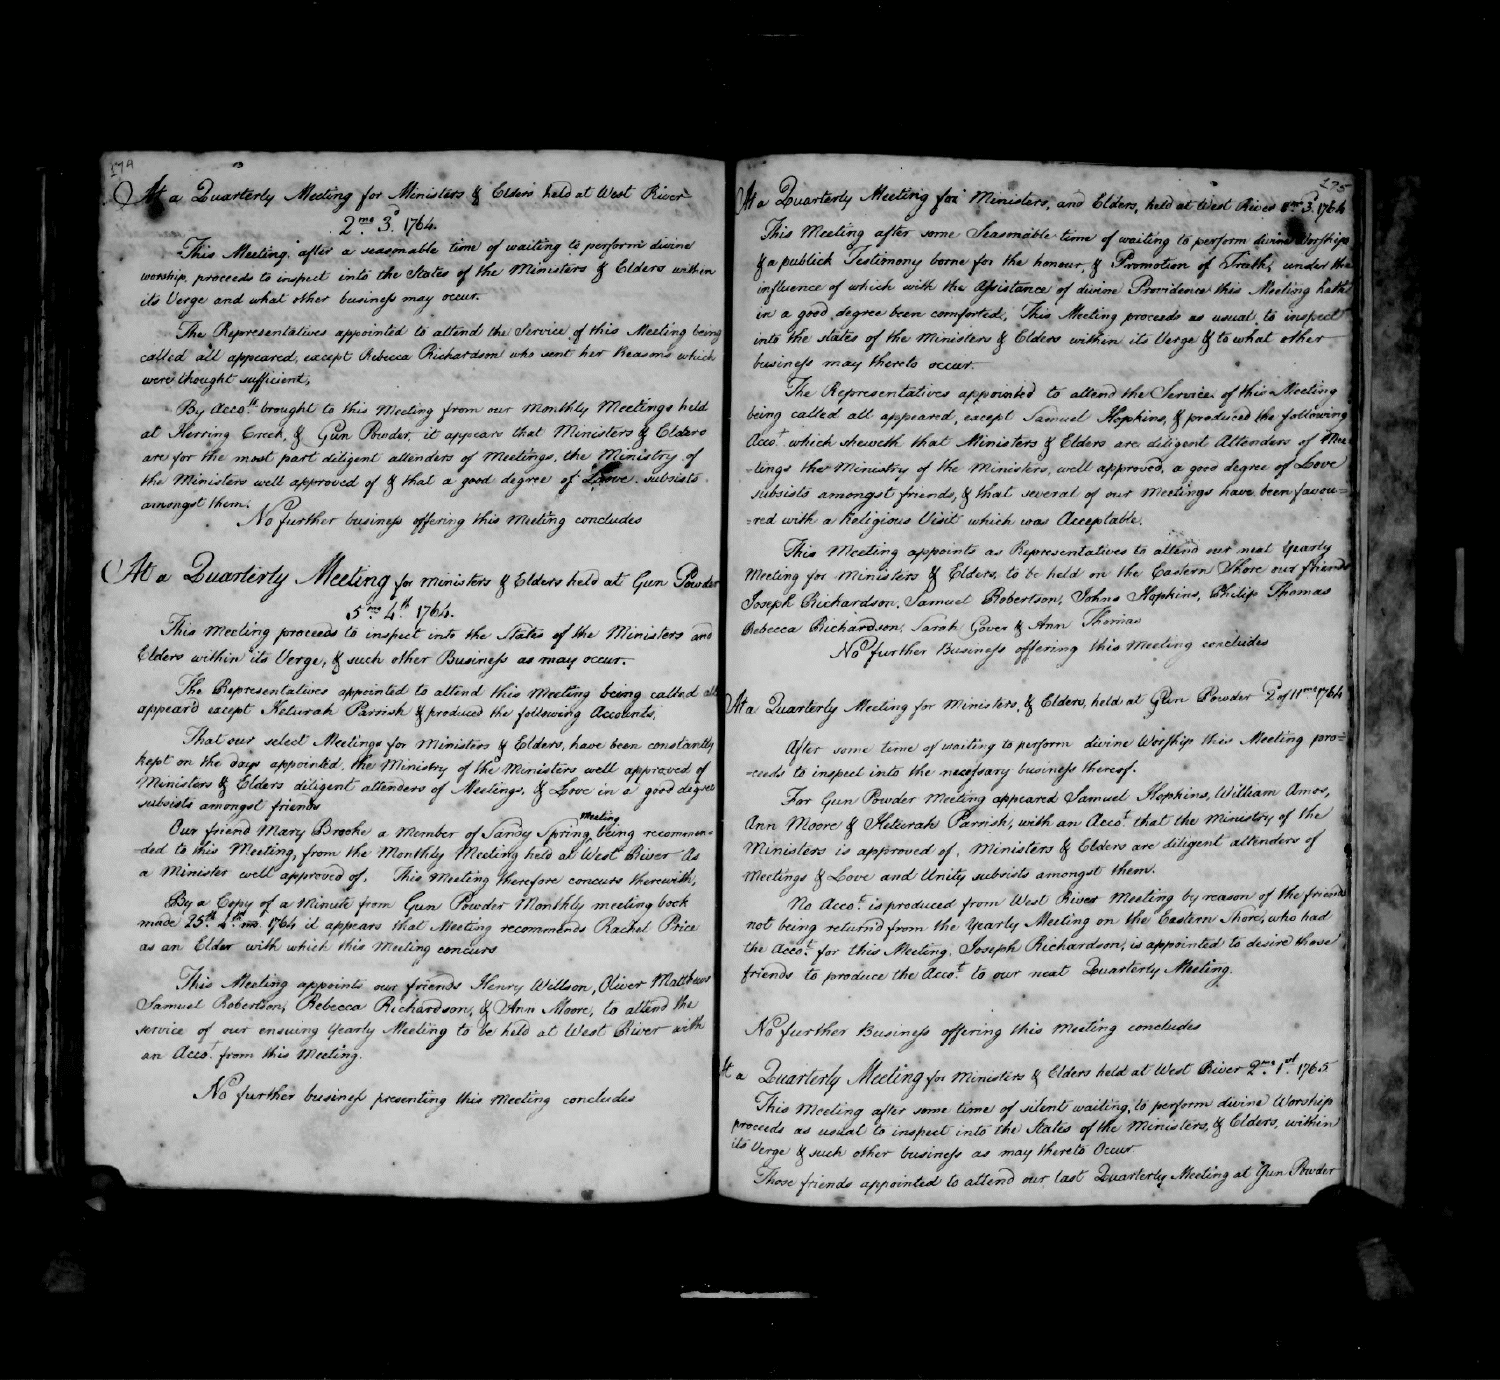 174
At a Quarterly Meeting for Ministers & Elders held at West River
2mo. 3d. 1764.
This Meeting after a seasonable time of waiting to perform divine
worship, proceeds to inspect into the States of the Ministers & Elders within
its Verge and what other business may occur.
The Representatives appointed to attend the Service of this Meeting being
called all appeared, except Rebecca Richardson who sent her Reasons which
were thought sufficient,
By Accots. brought to this Meeting from our Monthly Meetings held
at Herring Creek, & Gun Powder, it appears that Ministers & Elders
are for the most part diligent attenders of Meetings, the Ministry of
the Ministers well approved of & that a good degree of Love subsists
amongst them.
No further business offering this Meeting concludes
At a Quarterly Meeting for Ministers & Elders held at Gun Powder
5mo. 4th. 1764.
This Meeting proceeds to inspect into the States of the Ministers and
Elders within its Verge, & such other Business as may occur.
The Representatives appointed to attend this Meeting being called all
appeard except Keturah Parrish & produced the following Accounts.
That our select Meetings for Ministers & Elders, have been constantly
kept on the days appointed, the Ministry of the Ministers well approved of
Ministers & Elders diligent attenders of Meetings, & Love in a good degree
subsists amongst friends
Meeting
Our friend Mary Brooke a Member of Sandy Spring, being recommen=
=ded to this Meeting, from the Monthly Meeting held at West River As
a Minister well approved of. This Meeting therefore concurs therewith,
By a Copy of a Minute from Gun Powder Monthly meeting book
made 25th. 4th. mo. 1764 it appears that Meeting recommends Rachel Price
as an Elder with which this Meeting concurs
This Meeting appoints our friends Henry Willson, Oliver Matthews
Samuel Robertson, Rebecca Richardson, & Ann Moore, to attend the
service of our ensuing Yearly Meeting to be held at West River with
an Accot. from this Meeting.
No further business presenting this Meeting concludes
175
At a Quarterly Meeting for Ministers, and Elders, held at West River 8mo 3d. 1764
This Meeting after some Seasonable time of waiting to perform divine Worship
& a publick Testimony borne for the honour, & Promotion of Truth, under the
influence of which with the Assistance of divine Providence this Meeting hath
in a good degree been comforted, This Meeting proceeds as usual to inspect
into the states of the Ministers & Elders within its Verge & to what other
business may thereto occur.
The Representatives appointed to attend the Service of this Meeting
being called all appeared, except Samuel Hopkins, & produced the following
Accot. which sheweth that Ministers & Elders are diligent Attenders of Mee
=tings the Ministry of the Ministers, well approved, a good degree of Love
subsists amongst friends, & that several of our Meetings have been favou=
=red with a Religious Visit which was Acceptable.
This Meeting appoints as Representatives to attend our next Yearly
Meeting for Ministers & Elders, to be held on the Eastern Shore our friends
Joseph Richardson, Samuel Robertson, Johns Hopkins, Philip Thomas
Rebecca Richardson, Sarah Gover & Ann Thomas
No further Business offering this Meeting concludes
At a Quarterly Meeting for Ministers, & Elders, held at Gun Powder 2d of 11mo 1764
After some time of waiting to perform divine Worship this Meeting pro=
=ceeds to inspect into the necessary business thereof.
For Gun Powder Meeting appeared Samuel Hopkins, William Amos,
Ann Moore & Keturah Parrish, with an Accot. that the Ministry of the
Ministers is approved of, Ministers & Elders are diligent attenders of
Meetings & Love and Unity subsists amongst them.
No Accot. is produced from West River Meeting by reason of the friends
not being returnd from the Yearly Meeting on the Eastern Shore, who had
the Accot. for this Meeting, Joseph Richardson, is appointed to desire those
friends to produce the Accot. to our next Quarterly Meeting.
No further Business offering this Meeting concludes
At a Quarterly Meeting for Ministers & Elders held at West River 2mo. 1st. 1765
This Meeting after some time of silent waiting, to perform divine Worship
proceeds as usual to inspect into the States of the Ministers, & Elders, within
its Verge & such other business as may thereto Occur
Those friends appointed to attend our last Quarterly Meeting at Gun Powder